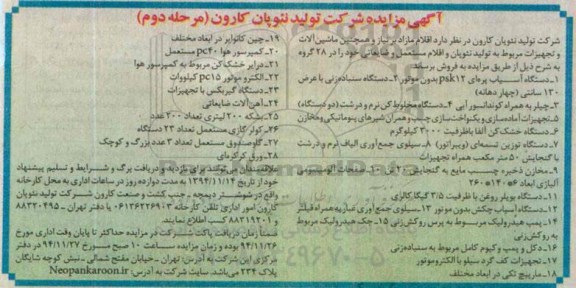 آگهی مزایده شرکت تولید نئوپان کارون (مرحله دوم)
شرکت تولید نئوپان کارون در نظر دارد اقلام مازاد بر نیاز و همچنین ماشین‌آلات
و تجهیزات مربوط به تولید نئوپان و اقلام مستعمل و ضایعاتی خود را در ۲۸ گروه
به شرح ذیل از طریق مزایده به فروش برساند
۱ـ دستگاه آسیاب پره‌ای psk12 بدون موتور ۲ـ دستگاه سنباده‌زنی با عرض
۱۳۰ سانتی (چهار دهانه)
۳ـ چیلر به همراه کوندانسور آبی ۴ـ دستگاه مخلوط کن نرم و درشت (دو دستگاه)
۵ـ تجهیزات آماده‌سازی و یکنواخت‌سازی چسب و همزن شیرهای پنوماتیکی و مخازن
۶ـ دستگاه خشک کن آلفا با ظرفیت ۳۰۰۰ کیلوگرم
۷ـ دستگاه توزین تسمه‌ای (ویبراتور) ۸ـ سیلوی جمع‌آوری الیاف نرم و درشت
با گنجایش ۵۰ متر مکعب همراه تجهیزات
۹ـ مخازن ذخیره چسب مایع به گنجایش ۱۰ صفحات آلومینیومی
آلیاژی ابعاد
۱۱ـ دستگاه بویلر روغن با ظرفیت ۳/۵ گیگا کالری
۱۲ـ دستگاه آسیاب چکش بدون موتور ۱۳ـ سیلوی جمع‌آوری غبار به همراه فیلتر
۱۴ـ پمپ هیدرولیک مربوط به پرس روکش زنی ۱۵ـ جک هیدرولیک مربوط
به روکش‌زنی
۱۶ـ دکل و پمپ وکیوم کامل مربوط به سنباده‌زنی
۱۷ـ تجهیزات کف گرد سیلو با الکتروموتور
۱۸ـ مارپیچ تکی در ابعاد مختلف
۱۹ـ چین کانوایر در ابعاد مختلف
۲۰ـ کمپرسور هوا pc40 مستعمل
۲۱ـ درایر خشک‌کن مربوط به کمپرسور هوا
۲۲ـ الکترو موتور pc15 کیلووات
۲۳ـ دستگاه گیربکس با تجهیزات
۲۴ـ آهن‌آلات ضایعاتی
۲۵ـ بشکه ۲۰۰ لیتری تعداد ۲۰۰ عدد
۲۶ـ کولر گازی مستعمل تعداد ۲۳ دستگاه
۲۷ـ گاوصندوق مستعمل تعداد ۳ عدد بزرگ و کوچک
۲۸ـ ورق کرکره‌ای
علاقمندان می‌توانند برای بازدید و دریافت برگ و شرایط و تسلیم پیشنهاد
خود از تاریخ ۱۳۹۴/۱۱/۱۴ به مدت دوازده روز در ساعات اداری به محل کارخانه
واقع در شوشتر دیمچه جنب کشت و صنعت کارون شرکت تولید نئوپان
کارون امور اداری تلفن کارخانه یا دفتر تهران ـ ۸۸۳۲۰۴۹۵
ـ ۸۸۳۱۹۲۰۱ کسب اطلاع نمایند.
ضمناً زمان دریافت پاکت شرکت در مزایده حداکثر تا پایان وقت اداری مورخ
۹۴/۱۱/۲۶ بوده و زمان مزایده ساعت ۱۰ صبح مورخ ۹۴/۱۱/۲۷ در دفتر
مرکزی این شرکت به آدرس: تهران ـ خیابان مفتح شمالی ـ نبش کوچه شایگان
پلاک ۲۳۴ می‌باشد. سایت شرکت به آدرس: Neopankaroon.ir